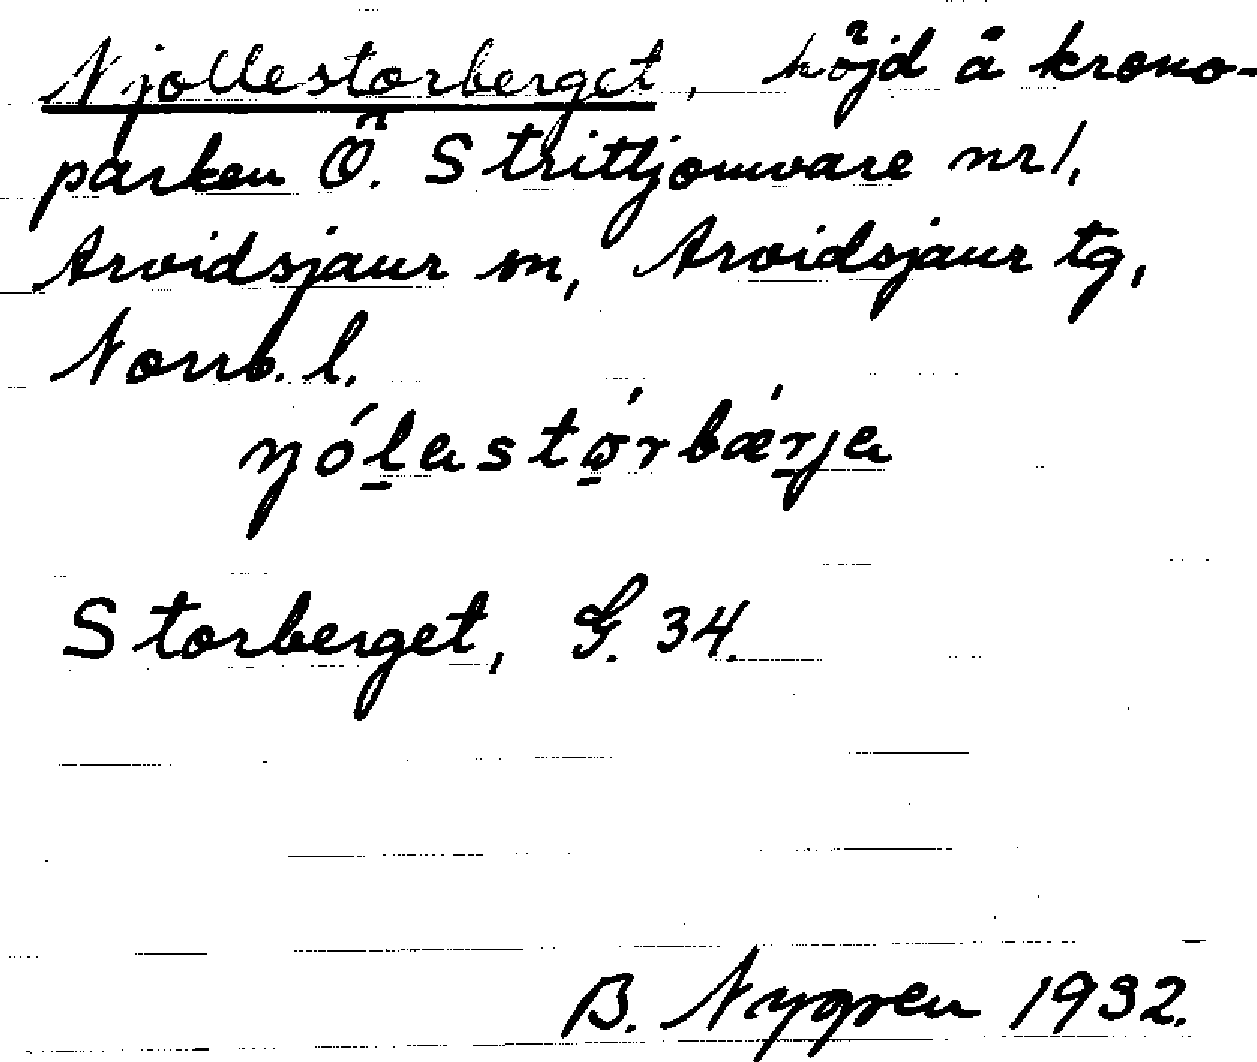 Njollestorberget, höjd å krono-
parken Ö. Strittjomvare nr 1,
Arvidsjaur sn, Arvidsjaur tg,
Norrb. l.
ŋólasto̱rbæ̱rja
Storberget, G. 34.
B. Nygren 1932.